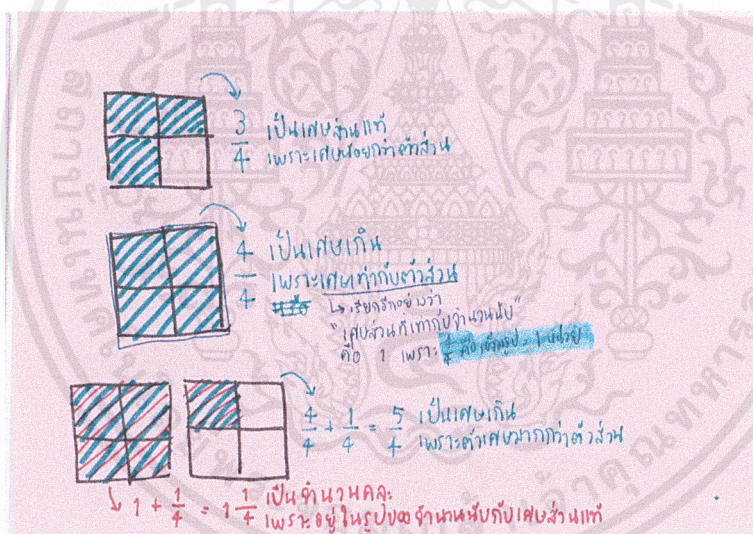 3/4 เป็นเศษส่วนแท้
เพราะเศษน้อยกว่าตัวส่วน
4/4 เป็นเศษเกิน
เพราะเศษเท่ากับตัวส่วน
↳ เรียกอีกอย่างว่า
"เศษส่วนที่เท่ากับจำนวนนับ"
คือ 1 เพราะ 4/4 คือเต็มรูป = 1 หน่วย
4/4 + 1/4 = 5/4 เป็นเศษเกิน
เพราะตัวเศษมากกว่าตัวส่วน
1 + 1/4 = 1 1/4 เป็นจำนวนคละ
เพราะอยู่ในรูปของจำนวนนับกับเศษส่วนแท้